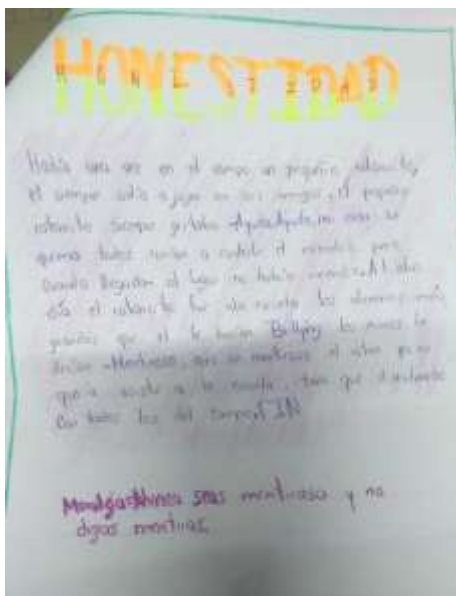 HONESTIDAD
Había una vez en el campo un pequeño ratoncito,
el siempre salía a jugar con sus amigos, el pequeño
ratoncito siempre gritaba Ayuda Ayuda, mi casa se
quema todos iban a el pero
cuando llegaban al lugar no había Al otro
día el ratoncito fue a la escuela los alumnos más
grandes que el le hacían Bullying los niños le
decían Mentiroso, eres un mentiroso el
que a la escuela, tuvo que disculparse
con todos los del campo. FIN
Nunca seas mentiroso y no
digas mentiras